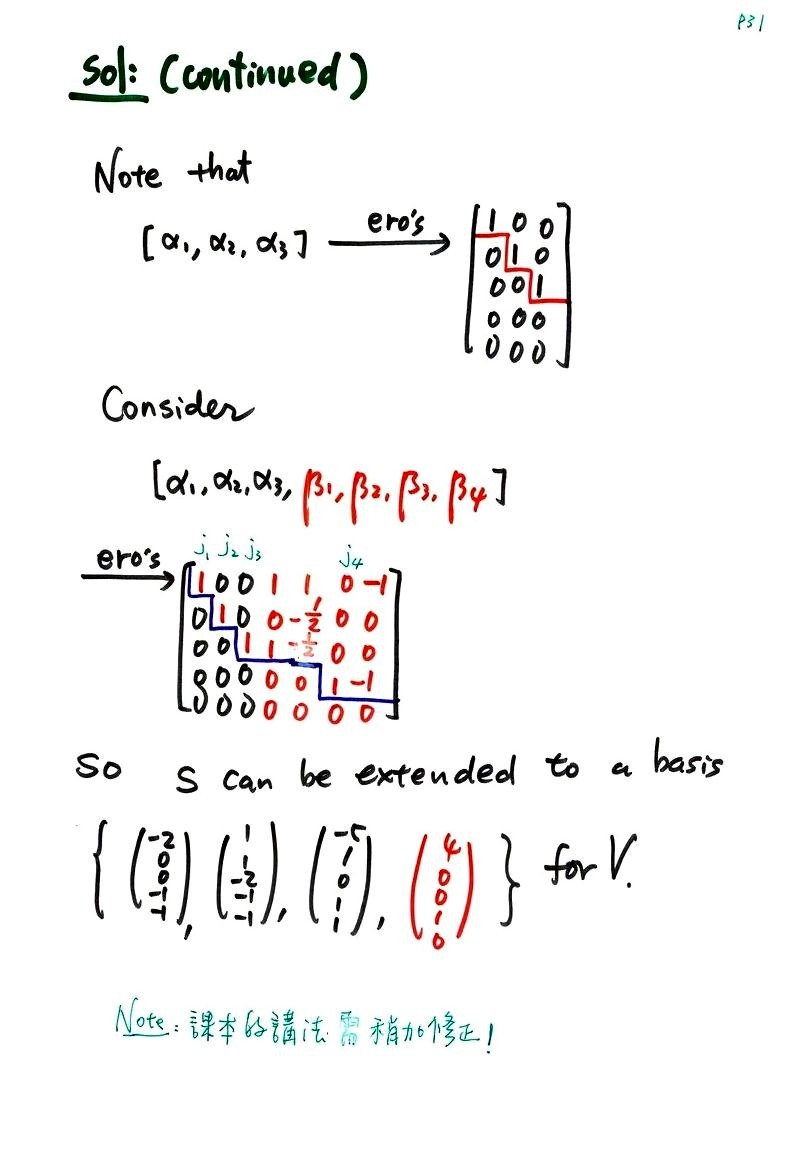 P31
Sol: (continued)
Note that
[α₁, α₂, α₃] ero's → [1 0 0
0 1 0
0 0 1
0 0 0
0 0 0]
Consider
[α₁, α₂, α₃, β₁, β₂, β₃, β₄]
j₁ j₂ j₃ j₄
ero's → [1 0 0 1 1 0 -1
0 1 0 0 -1/2 0 0
0 0 1 1 -1/2 0 0
0 0 0 0 0 1 -1
0 0 0 0 0 0 0]
So S can be extended to a basis
{ (-2 0 0 -1 -1), (1 1 -2 -1 -1), (-5 1 0 1 1), (4 0 0 1 0) } for V.
Note: 課本的講法需稍加修正!